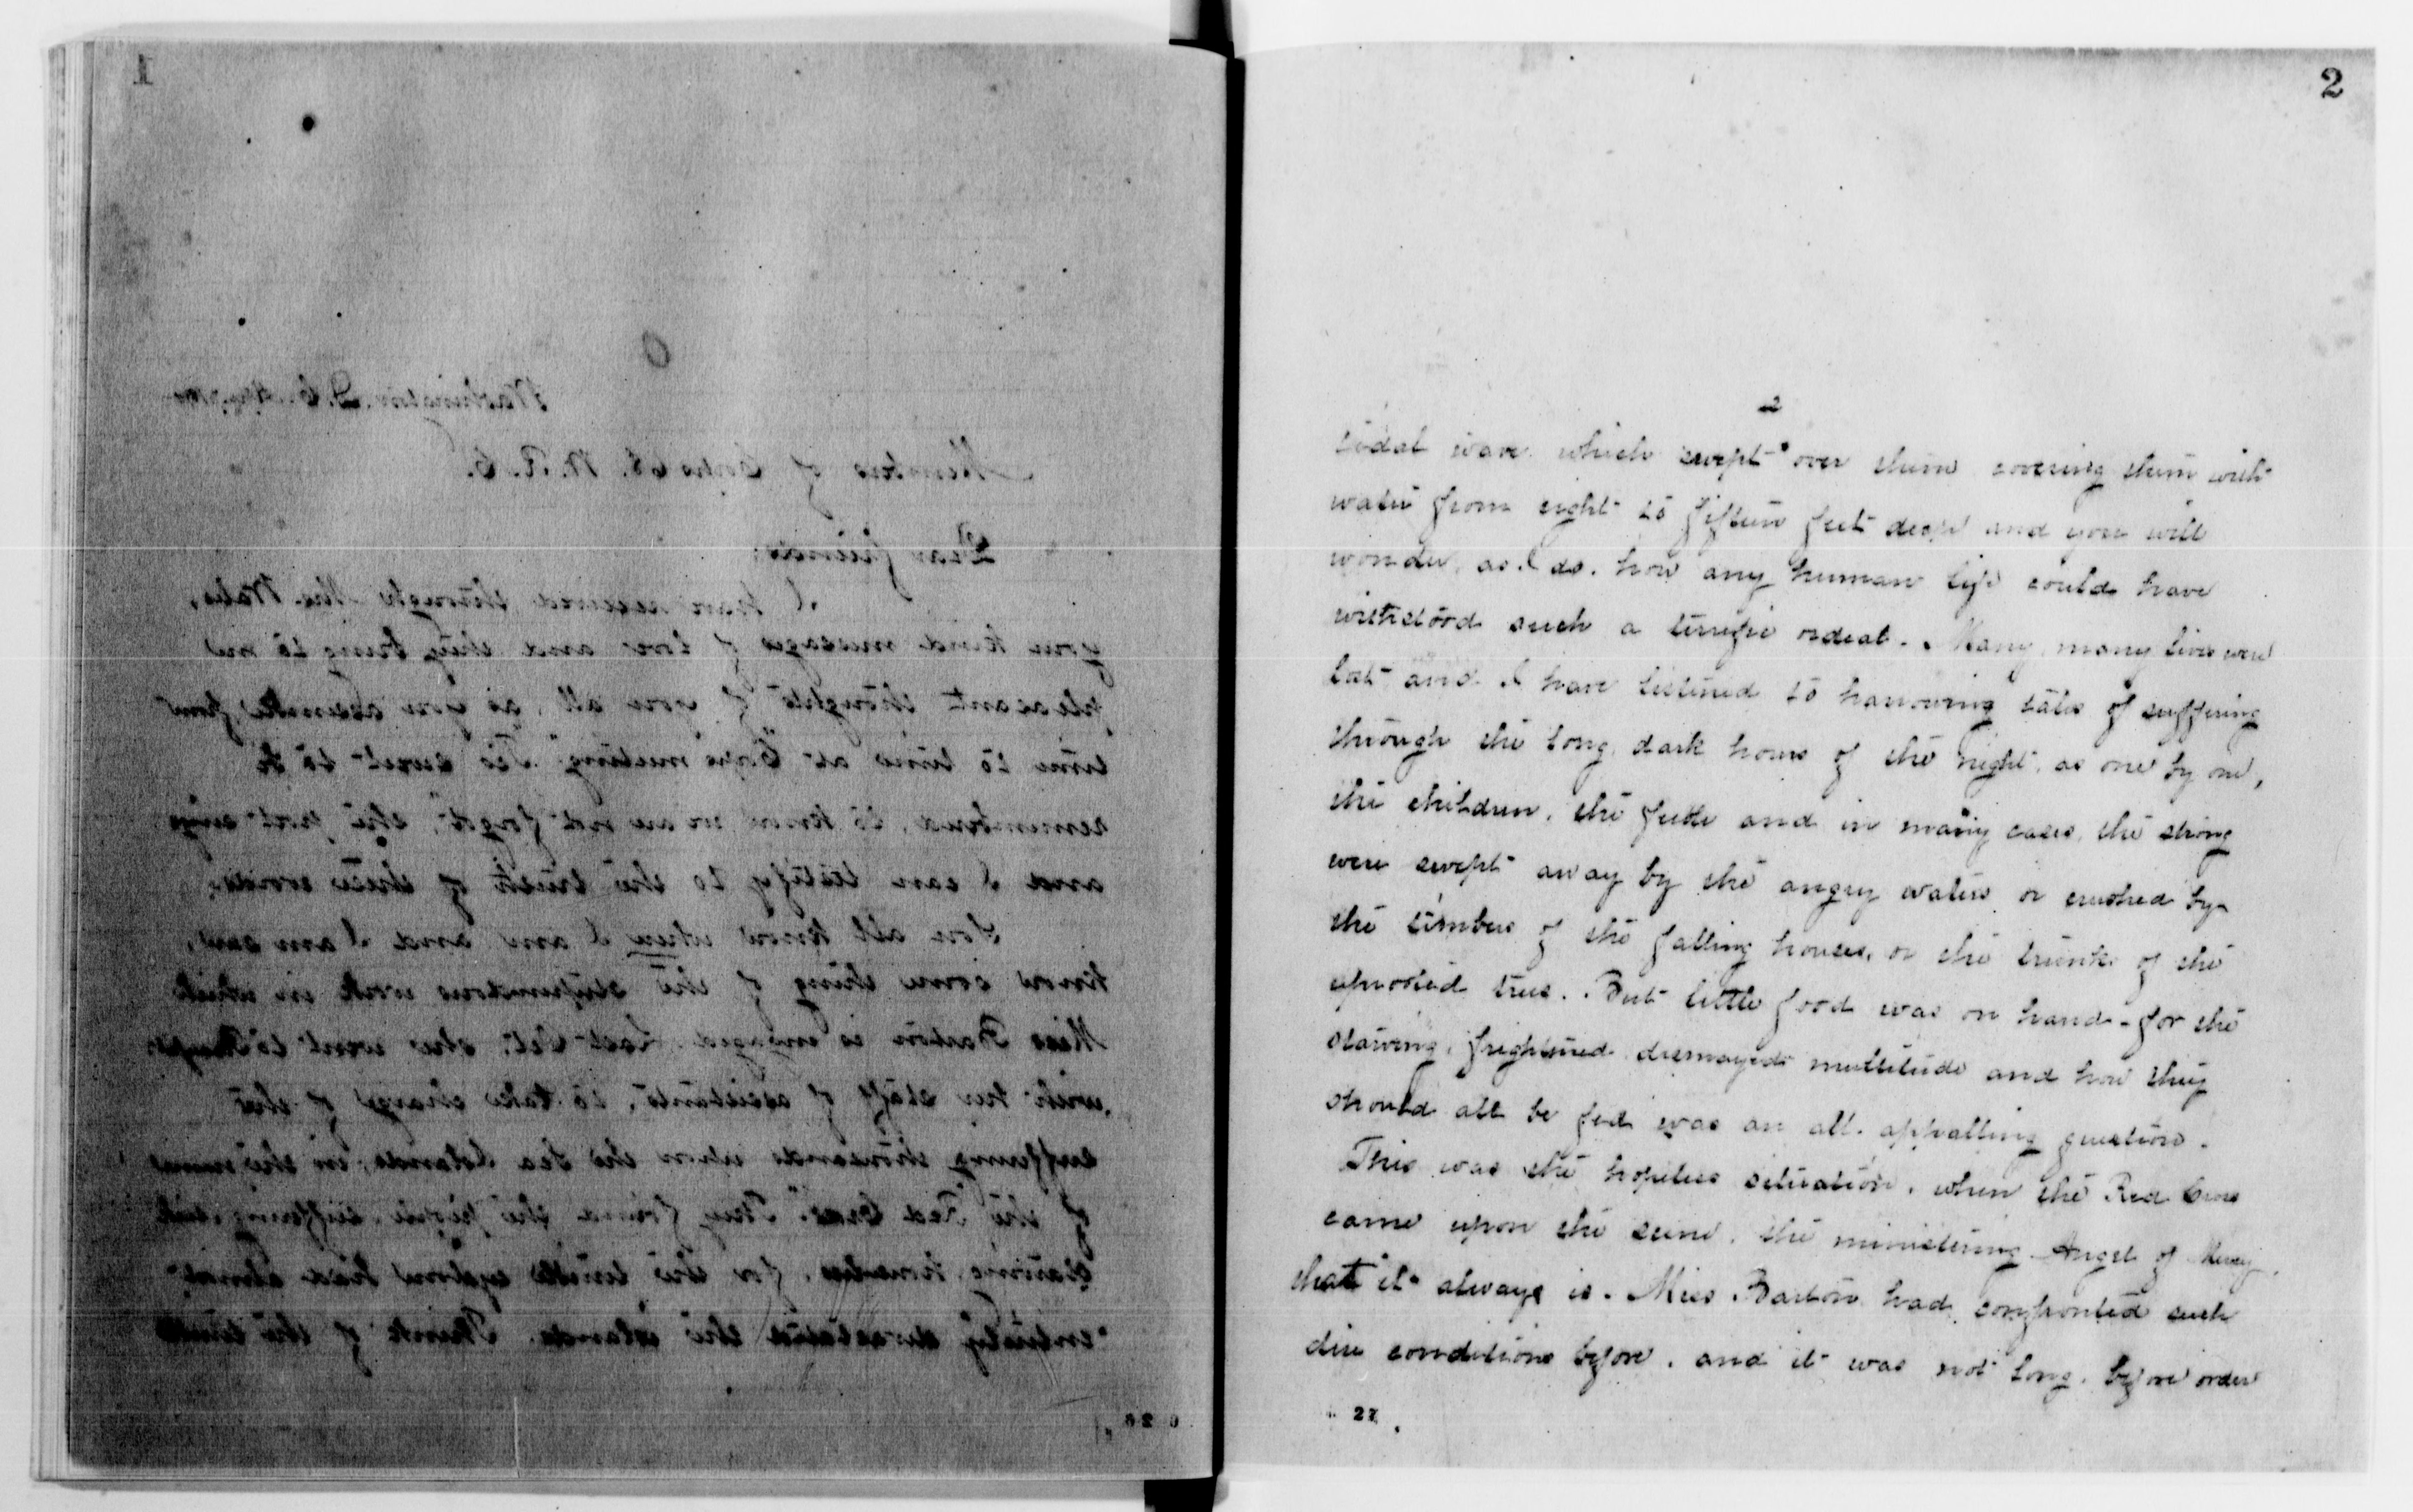 1
Washington. D. C.
Members of Corps 68. W. R. C.
Dear friends:
I have received through Mrs. Wales,
your kind messages of love and they bring to me
pleasant thoughts of you all, as you assemble from
time to time at "Corps meeting". "Tis sweet to be
remembered, to know we are not forgot", the poet sings
and I can testify to the truth of these words.
You all know where I am and I am sure,
know some thing of the stupendous work in which
Miss Barton is engaged. Last Oct. she went to
with her staff of assistants, to take charge of the
suffering thousands upon the Sea Islands, in the name
of the "Red Cross". They found the people, suffering, sick
starving, homeless, for the terrible cyclone had almost
entirely devastated the islands. Think of the terrible
26
2
2
tidal wave which swept over them covering them with
water from eight to fifteen feet deep and you will
wonder, as I do, how any human life could have
withstood such a terrific ordeal. Many, many lives were
lost and I have listened to harrowing tales of suffering
through the long, dark hours of the night, as one by one,
the children, the feeble and in many cases, the strong
were swept away by the angry waters or crushed by
the timbers of the falling houses, or the trunks of the
uprooted trees. But little food was on hand for the
starving, frightened dismayed multitude and how they
should all be fed was an all appalling question.
This was the hopeless situation, when the Red Cross
came upon the scene, the ministering Angel of Mercy,
that it always is. Miss Barton had confronted such
dire conditions before, and it was not long, before order
27